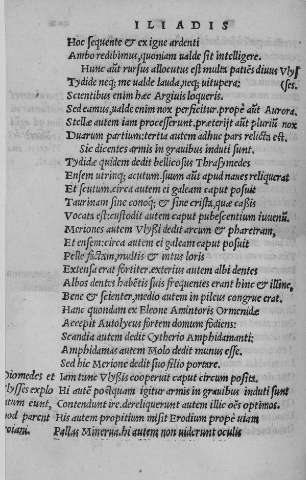 ILIADIS
Hoc sequente & ex igne ardenti
Ambo redibimus, quoniam ualde sit intelligere.
Hunc aũt rursus allocutus est multa patiẽs diuus Vlyſ
Tydide neq; me ualde lauda, neq; uitupera: (ses.
Scientibus enim hæc Argiuis loqueris.
Sed eamus, ualde enim nox perficitur. prope aũt Aurora.
Stellæ autem iam processerunt, præterijt aũt plurima nox
Duarum partium: tertia autem adhuc pars relicta est.
Sic dicentes armis in grauibus induti sunt.
Tydidæ quidem dedit bellicosus Thrasymedes
Ensem utrinq; acutum. suum aũt apud nanes reliquerat
Et scutum. circa autem ei galeam caput posuit
Taurinam sine conoq; & sine crista, quæ caßis
Vocata est: custodit autem caput pubescentium iuuenũ.
Meriones autem Vlyßi dedit arcum & pharetram,
Et ensem: circa autem ei galeam caput posuit
Pelle factam, multis & intus loris
Extensa erat fortiter. exterius autem albi dentes
Albos dentes habẽtis suis frequentes erant hinc & illinc,
Bene & scienter, medio autem in pileus congrue erat.
Hanc quondam ex Eleone Amintoris Ormenidæ
Accepit Autolycus fortem domum fodiens:
Scandia autem dedit Cytherio Amphidamanti;
Amphidamas autem Molo dedit munus esse.
Sed hic Merione dedit suo filio portare.
Diomedes et Iam tunc Vlyßis cooperuit caput circum posita.
Vlysses explo Hi autẽ postquam igitur armis in grauibus induti sunt
tum eunt, Contendunt ire. dereliquerunt autem illic oẽs optimos.
parent His autem propitium misit Erodium prope uiam
Pallas Minerua. hi autem non uiderunt oculis